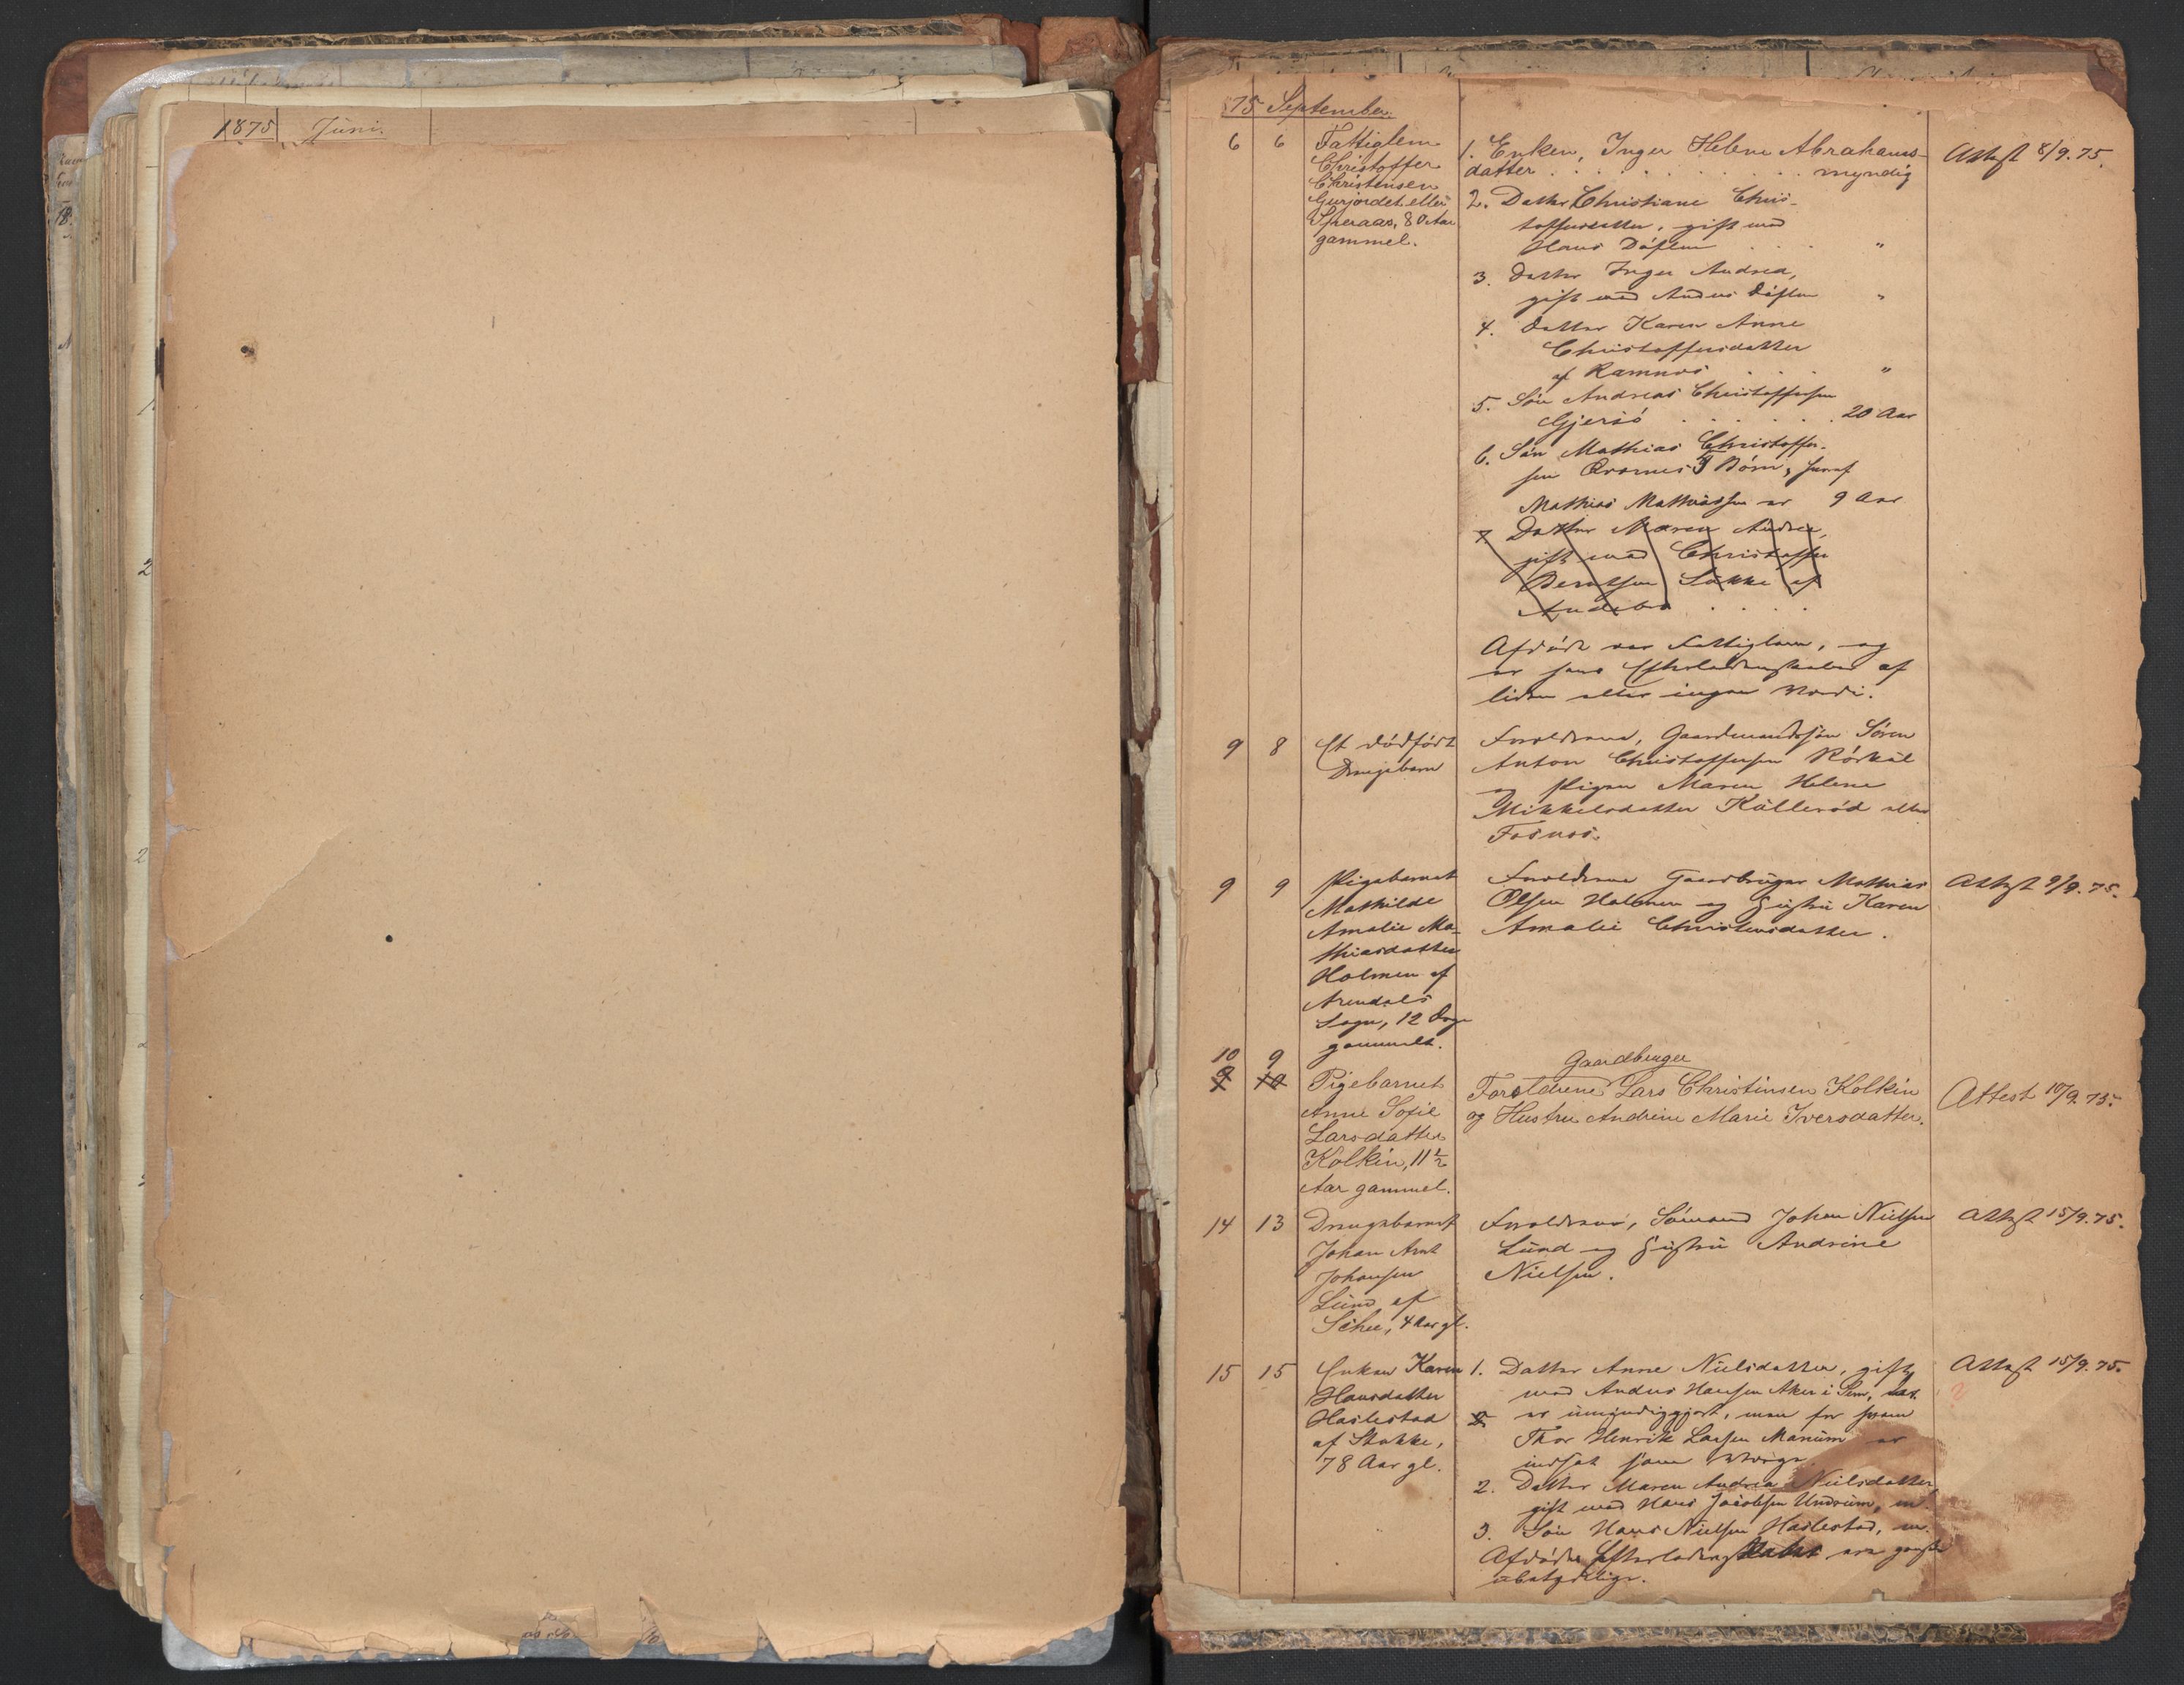 1875 Juni.
75 September.
6 6 Fattiglem
Christoffer
Christensen
Gurjordet eller
80 Aar
gammel.
1. Enken, Inger Helene Abrahams-
datter . . . . . . . . . . myndig
2. Datter Christiane Chris-
toffersdatter, gift med
Hans Döflen . . . "
3. Datter Inger Andrea,
gift med Anders Döflen "
4. Datter Karen Anne
Christoffersdatter
af Ramnes . . . . "
5. Sön Andreas Christoffersen
Gjersö . . . . . . 20 Aar
6. Sön Mathias Christoffer-
sen Börn, hvoraf
Mathias Mathiassen er 9 Aar
7. Datter Maren Andrea,
gift med Christoffer
Berntsen Lökke af
Andebu . . . .
Afdöde var Fattiglem, og
er hans Efterladenskaber af
liden eller ingen Værdi.
Attest 8/9.75.
9 8 Et dödfödt
Drengebarn
Forældrene, Gaardmandssön Sören
Anton Christoffersen Rörkål
og Pigen Maren Helene
Mikkelsdatter Kålleröd eller
Fosnes.
9 9 Pigebarnet
Mathilde
Amalie Ma-
thiasdatter
Holmen af
Arendals
Sogn, 12 Dage
gammelt.
Forældrene Gaardbruger Mathias
Olsen Holmen og Hustru Karen
Amalie Christensdatter.
Attest 9/9.75.
10 9
Pigebarnet
Anne Sofie
Larsdatter
Kolkin, 11 1/2
Aar gammel.
Gaardbruger
Forældrene Lars Christensen Kolkin
og Hustru Andrine Marie Iversdatter.
Attest 10/9.75.
14 13 Drengebarnet
Johan Arnt
Johansen
Lund af
Sem, 4 Aar gl.
Forældrene, Sömand Johan Nielsen
Lund og Hustru Andrine
Nielsen.
Attest 15/9.75.
15 15 Enken Karen
Hansdatter
Haslestad
af Stokke,
78 Aar gl.
1. Datter Anne Nielsdatter, gift
med Anders Hansen Aker i Sem,
er umyndiggjort, men for hvem
Thor Henrik Larsen Manum er
indsat som Værge.
2. Datter Maren Andrea Nielsdatter,
gift med Hans Jacobsen Undrum, m.
3. Sön Hans Nielsen Haslestad, m.
Afdödes Efterladenskaber ere ganske
ubetydelige.
Attest 15/9.75.